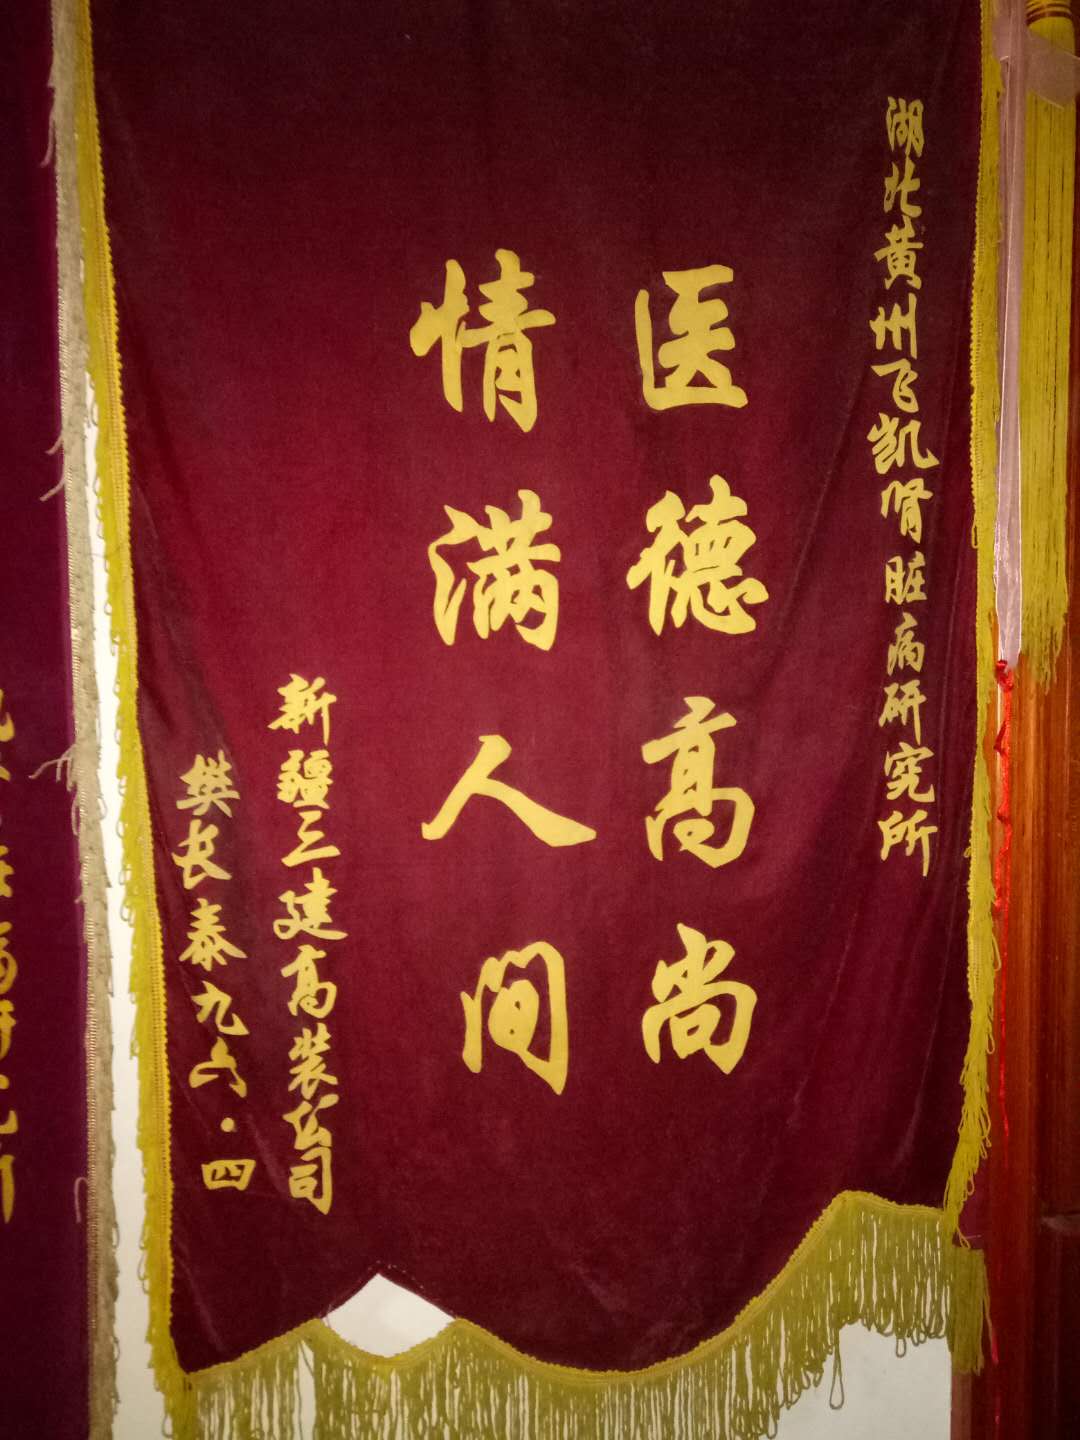 湖北黄州飞凯肾脏病研究所
医德高尚
情满人间
新疆三建高装公司
樊长泰九六·四